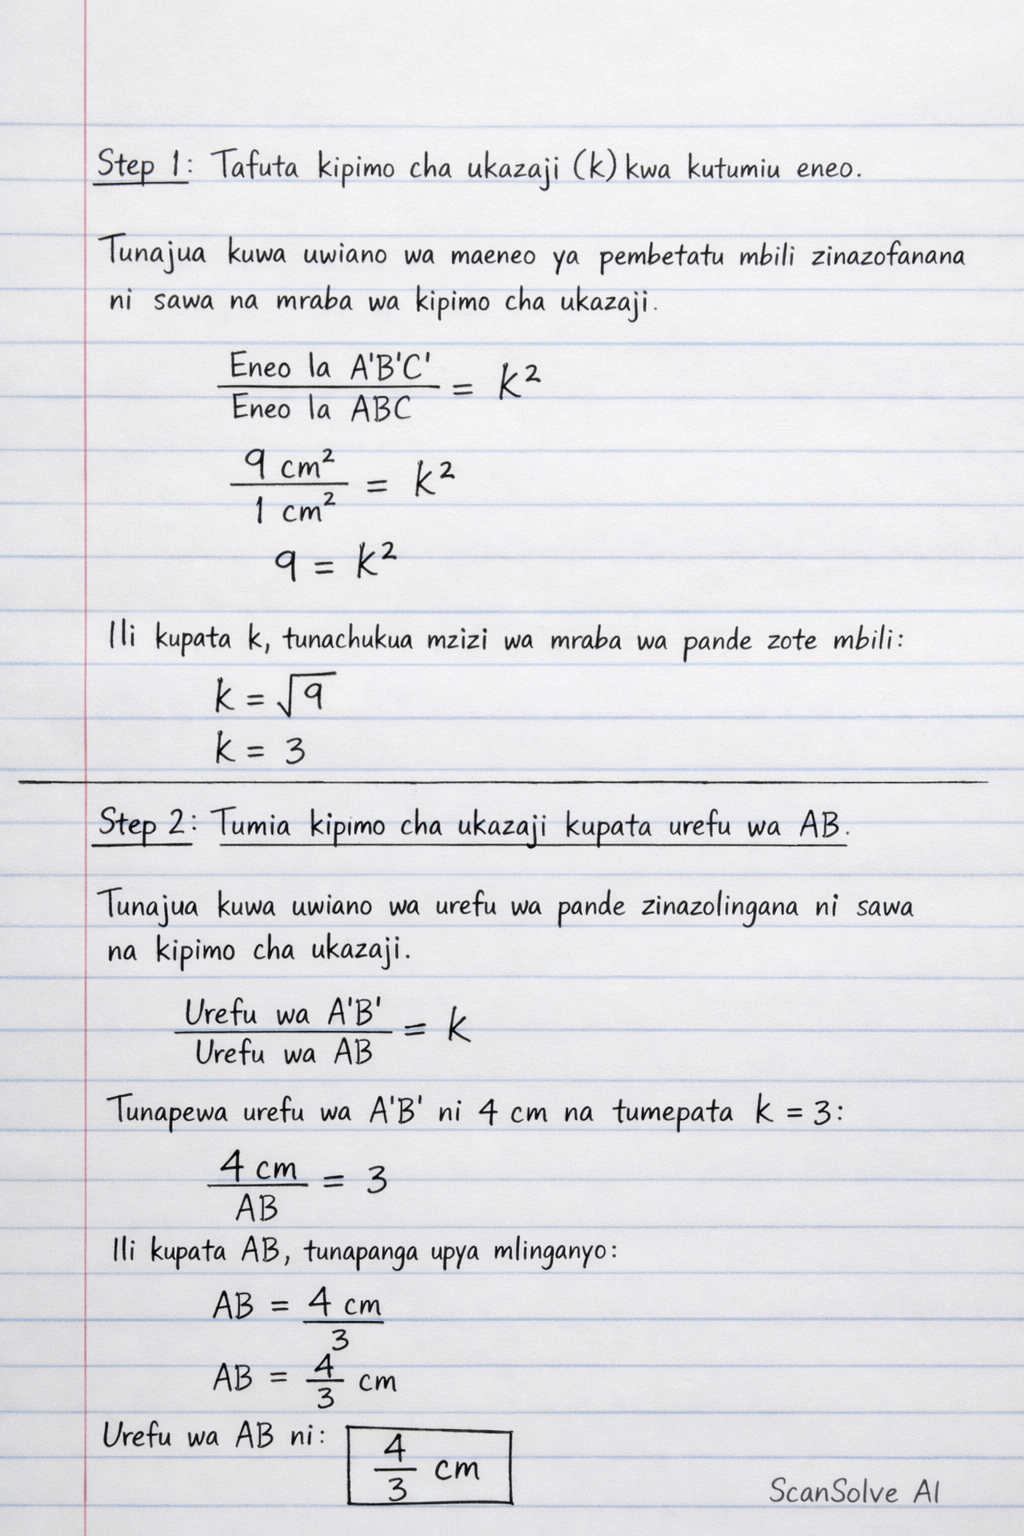 Step 1: Tafuta kipimo cha ukazaji (k) kwa kutumiu eneo.
Tunajua kuwa uwiano wa maeneo ya pembetatu mbili zinazofanana
ni sawa na mraba wa kipimo cha ukazaji.
Eneo la A'B'C'
Eneo la ABC
= k²
9 cm²
1 cm²
= k²
9 = k²
Ili kupata k, tunachukua mzizi wa mraba wa pande zote mbili:
k = √9
k = 3
Step 2: Tumia kipimo cha ukazaji kupata urefu wa AB.
Tunajua kuwa uwiano wa urefu wa pande zinazolingana ni sawa
na kipimo cha ukazaji.
Urefu wa A'B'
Urefu wa AB
= k
Tunapewa urefu wa A'B' ni 4 cm na tumepata k = 3:
4 cm
AB
= 3
Ili kupata AB, tunapanga upya mlinganyo:
AB = 4 cm
3
AB = 4/3 cm
Urefu wa AB ni: 4/3 cm
ScanSolve AI